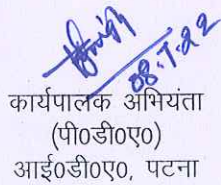 08.7.22
कार्यपालक अभियंता
(पी०डी०ए०)
आई०डी०ए०, पटना